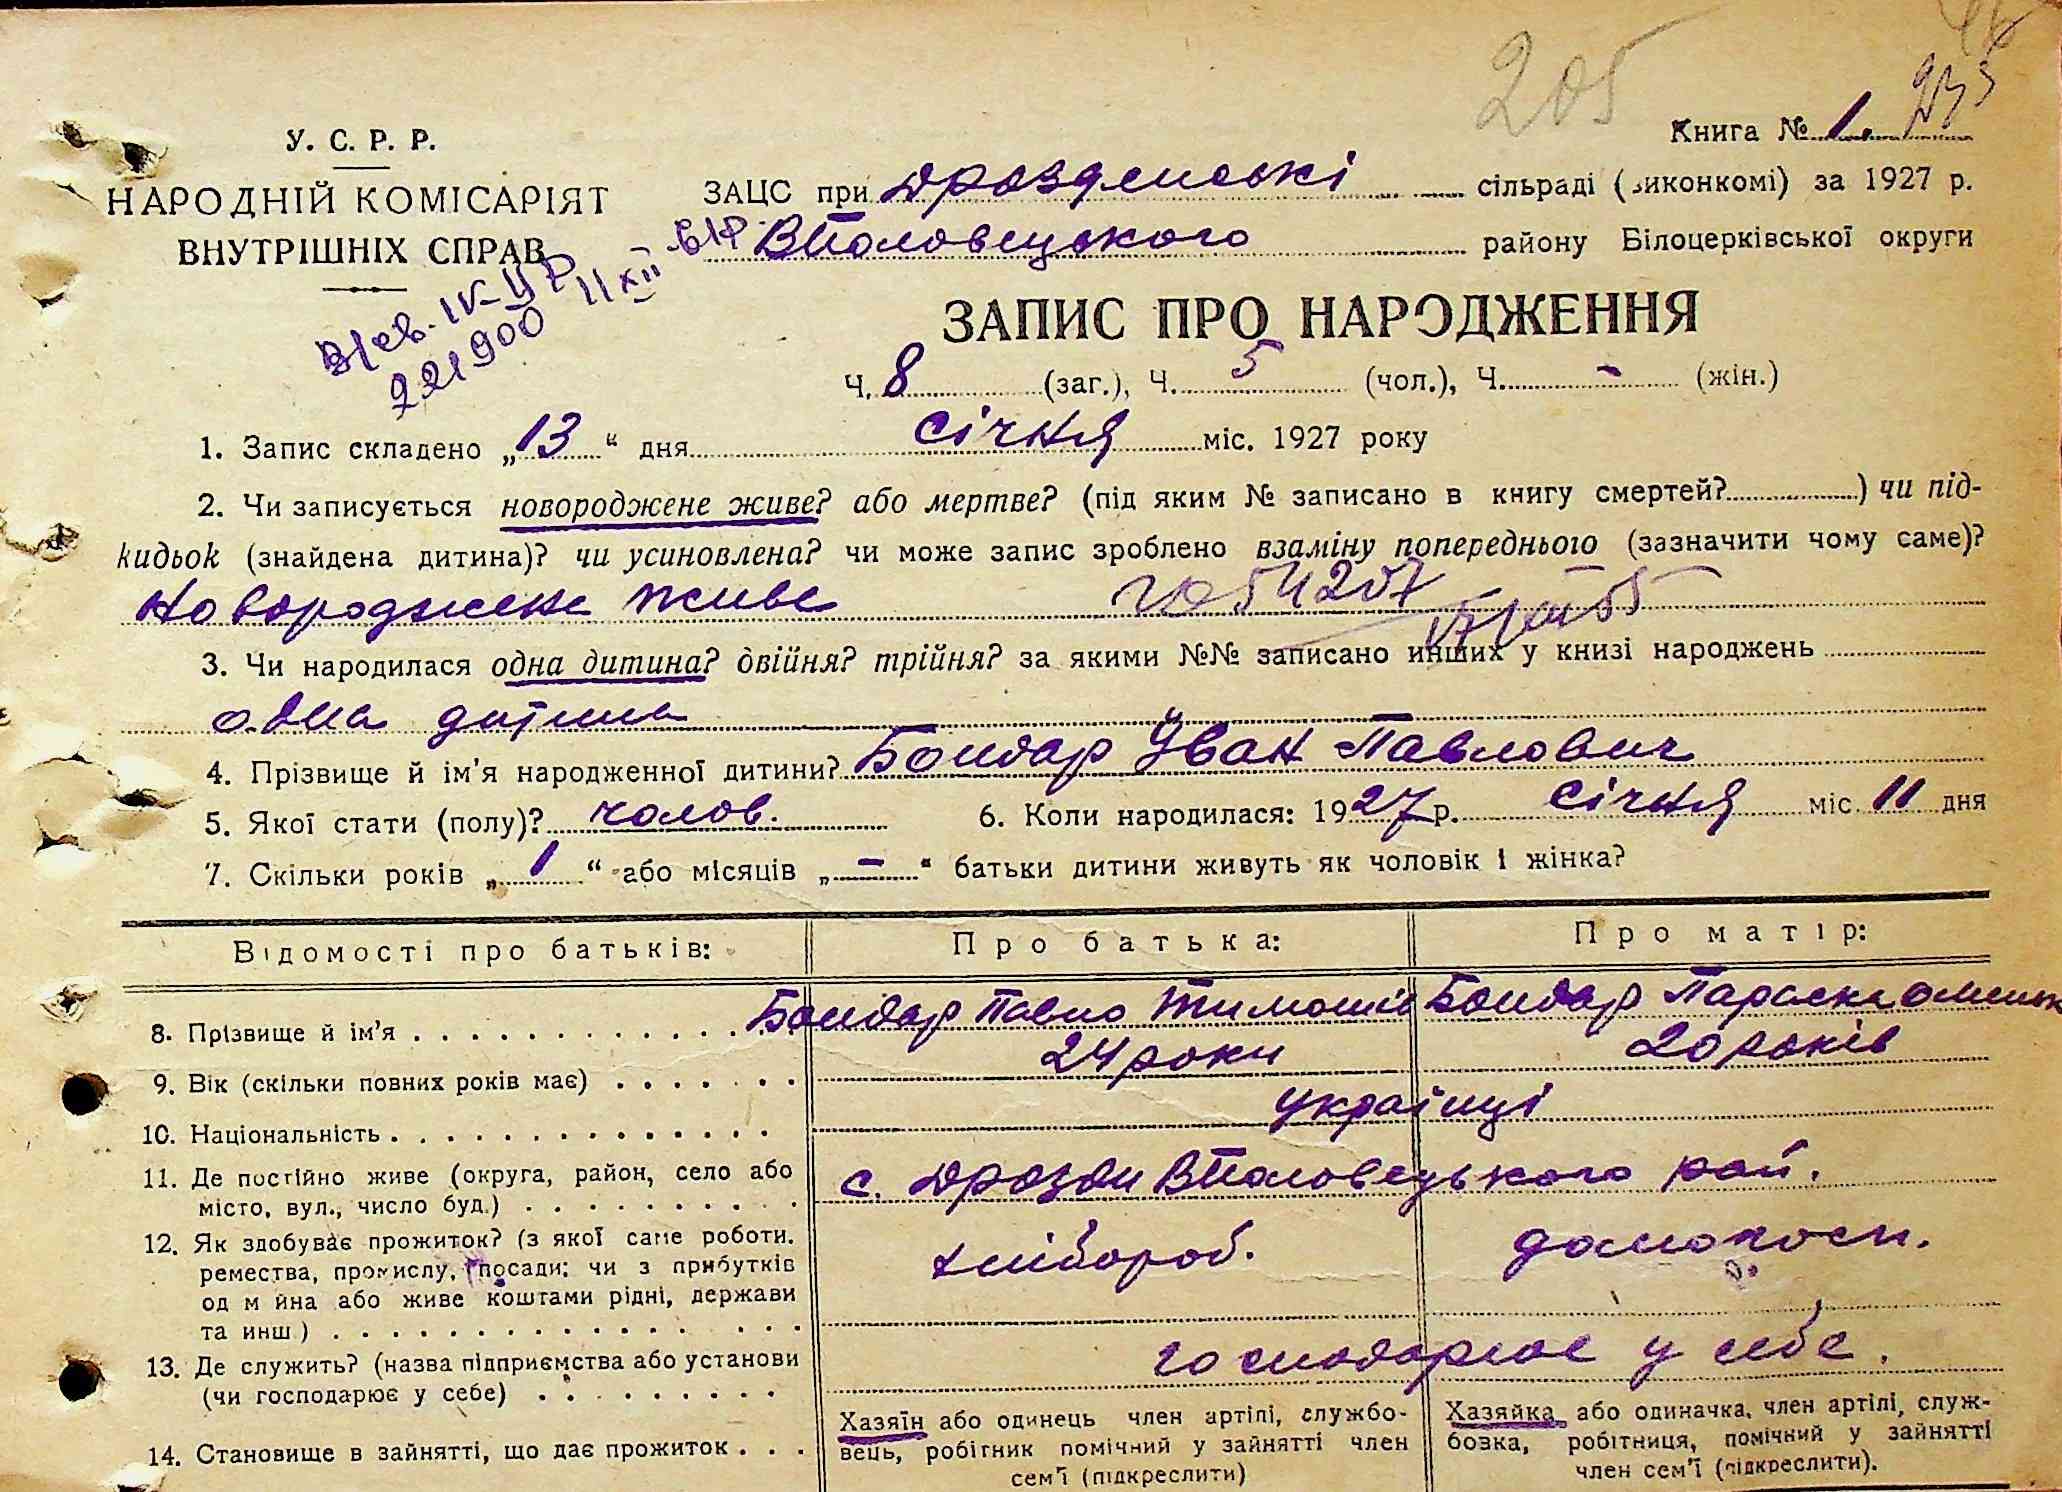 205
235
У. С. Р. Р.
НАРОДНІЙ КОМІСАРІЯТ
ВНУТРІШНІХ СПРАВ
Книга № 1.
ЗАЦС при Дроздянські сільраді (виконкомі) за 1927 р.
ВПоловецького району Білоцерківської округи
221900
ЗАПИС ПРО НАРОДЖЕННЯ
Ч. 8 (заг.), Ч. 5 (чол.), Ч. - (жін.)
1. Запис складено „13“ дня січня міс. 1927 року
2. Чи записується новороджене живе? або мертве? (під яким № записано в книгу смертей? ) чи під-
кидьок (знайдена дитина)? чи усиновлена? чи може запис зроблено взаміну попереднього (зазначити чому саме)?
Новороджене живе
3. Чи народилася одна дитина? двійня? трійня? за якими №№ записано инших у книзі народжень
одна дитина
4. Прізвище й ім'я народженної дитини? Бондар Іван Павлович
5. Якої стати (полу)? чолов. 6. Коли народилася: 1927 р. січня міс. 11 дня
7. Скільки років „1“ або місяців „-“ батьки дитини живуть як чоловік і жінка?
Відомості про батьків: Про батька: Про матір:
8. Прізвище й ім'я Бондар Павло Бондар Параска
9. Вік (скільки повних років має) 24 роки 20 років
10. Національність українці
11. Де постійно живе (округа, район, село або
місто, вул., число буд.) с. Дрозди ВПоловецького рай.
12. Як здобуває прожиток? (з якої саме роботи.
ремества, промислу, посади; чи з прибутків
од майна або живе коштами рідні, держави
та инш.) хлібороб. домогосп.
13. Де служить? (назва підприємства або установи
(чи господарює у себе) господарює у себе.
14. Становище в зайнятті, що дає прожиток
Хазяїн або одинець член артілі, службо-
вець, робітник помічний у зайнятті член
сем'ї (підкреслити)
Хазяйка або одиначка, член артілі, служ-
бовка, робітниця, помічний у зайнятті
член сем'ї (підкреслити).